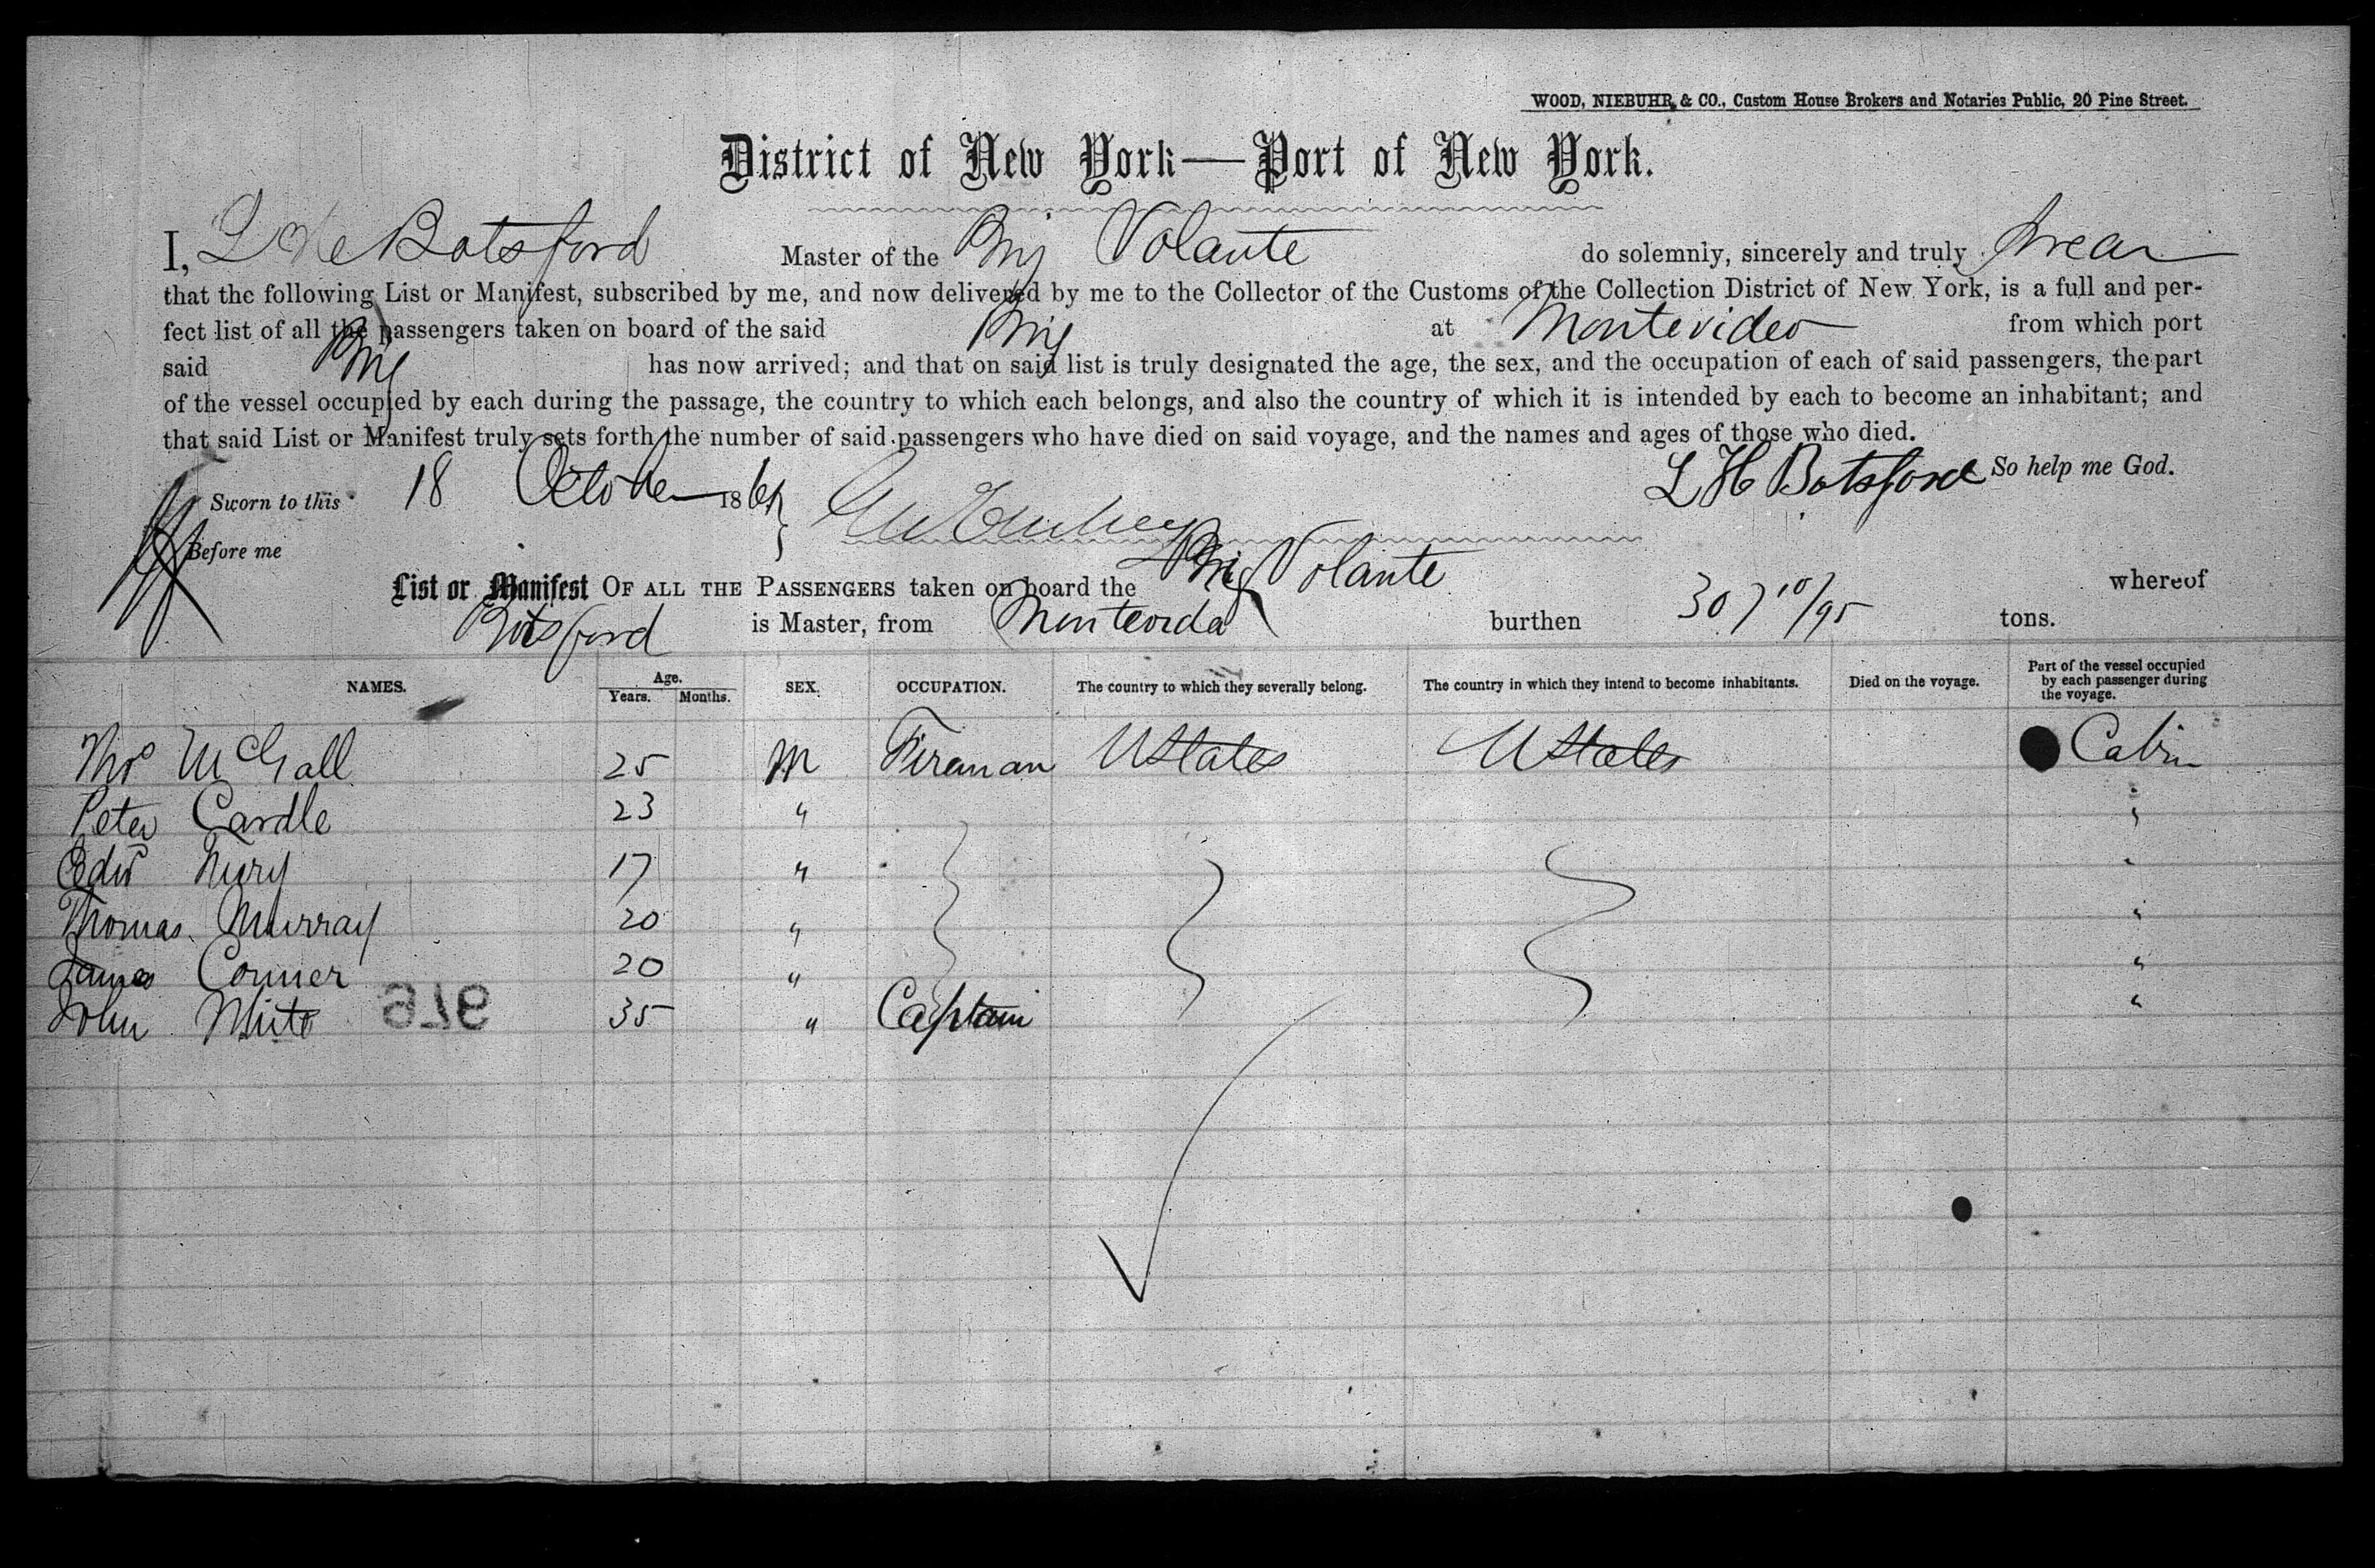 WOOD, NIEBUHR & CO., Custom House Brokers and Notaries Public, 20 Pine Street.
District of New York—Port of New York.
I, L H Botsford Master of the Brig Volante do solemnly, sincerely and truly swear
that the following List or Manifest, subscribed by me, and now delivered by me to the Collector of the Customs of the Collection District of New York, is a full and per-
fect list of all the passengers taken on board of the said Brig at Montevideo from which port
said Brig has now arrived; and that on said list is truly designated the age, the sex, and the occupation of each of said passengers, the part
of the vessel occupied by each during the passage, the country to which each belongs, and also the country of which it is intended by each to become an inhabitant; and
that said List or Manifest truly sets forth the number of said passengers who have died on said voyage, and the names and ages of those who died.
L H Botsford So help me God.
Sworn to this 18 October 186
Before me
List or Manifest OF ALL THE PASSENGERS taken on board the Brig Volante whereof
Botsford is Master, from burthen 307 10/95 tons.
NAMES. Age. Years. Months. SEX. OCCUPATION. The country to which they severally belong. The country in which they intend to become inhabitants. Died on the voyage. Part of the vessel occupied by each passenger during the voyage.
Thos McGall 25 M Fireman UStates UStates Cabin
Peter Cardle 23 " "
Edwd 17 " "
Thomas Murray 20 " "
James Conner 20 " "
John White 35 " Captain "
976